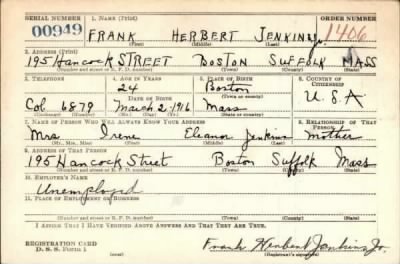 SERIAL NUMBER 1. NAME (Print) ORDER NUMBER
00949 FRANK HERBERT JENKINS Jr. 1406
(First) (Middle) (Last)
2. ADDRESS (Print)
195 Hancock STREET BOSTON SUFFOLK MASS
(Number and street or R. F. D. number) (Town) (County) (State)
3. TELEPHONE 4. AGE IN YEARS 5. PLACE OF BIRTH 6. COUNTRY OF CITIZENSHIP
24 Boston
DATE OF BIRTH (Town or county)
Col 6879 March 2, 1916 Mass U.S.A
(Exchange) (Number) (Mo.) (Day) (Yr.) (State or country)
7. NAME OF PERSON WHO WILL ALWAYS KNOW YOUR ADDRESS 8. RELATIONSHIP OF THAT PERSON
Mrs Irene Eleanor Jenkins Mother
(Mr., Mrs., Miss) (First) (Middle) (Last)
9. ADDRESS OF THAT PERSON
195 Hancock Street Boston Suffolk Mass
(Number and street or R. F. D. number) (Town) (County) (State)
10. EMPLOYER'S NAME
Unemployed
11. PLACE OF EMPLOYMENT OR BUSINESS
(Number and street or R. F. D. number) (Town) (County) (State)
I AFFIRM THAT I HAVE VERIFIED ABOVE ANSWERS AND THAT THEY ARE TRUE.
REGISTRATION CARD
D. S. S. Form 1 (over) Frank Herbert Jenkins Jr.
(Registrant's signature)